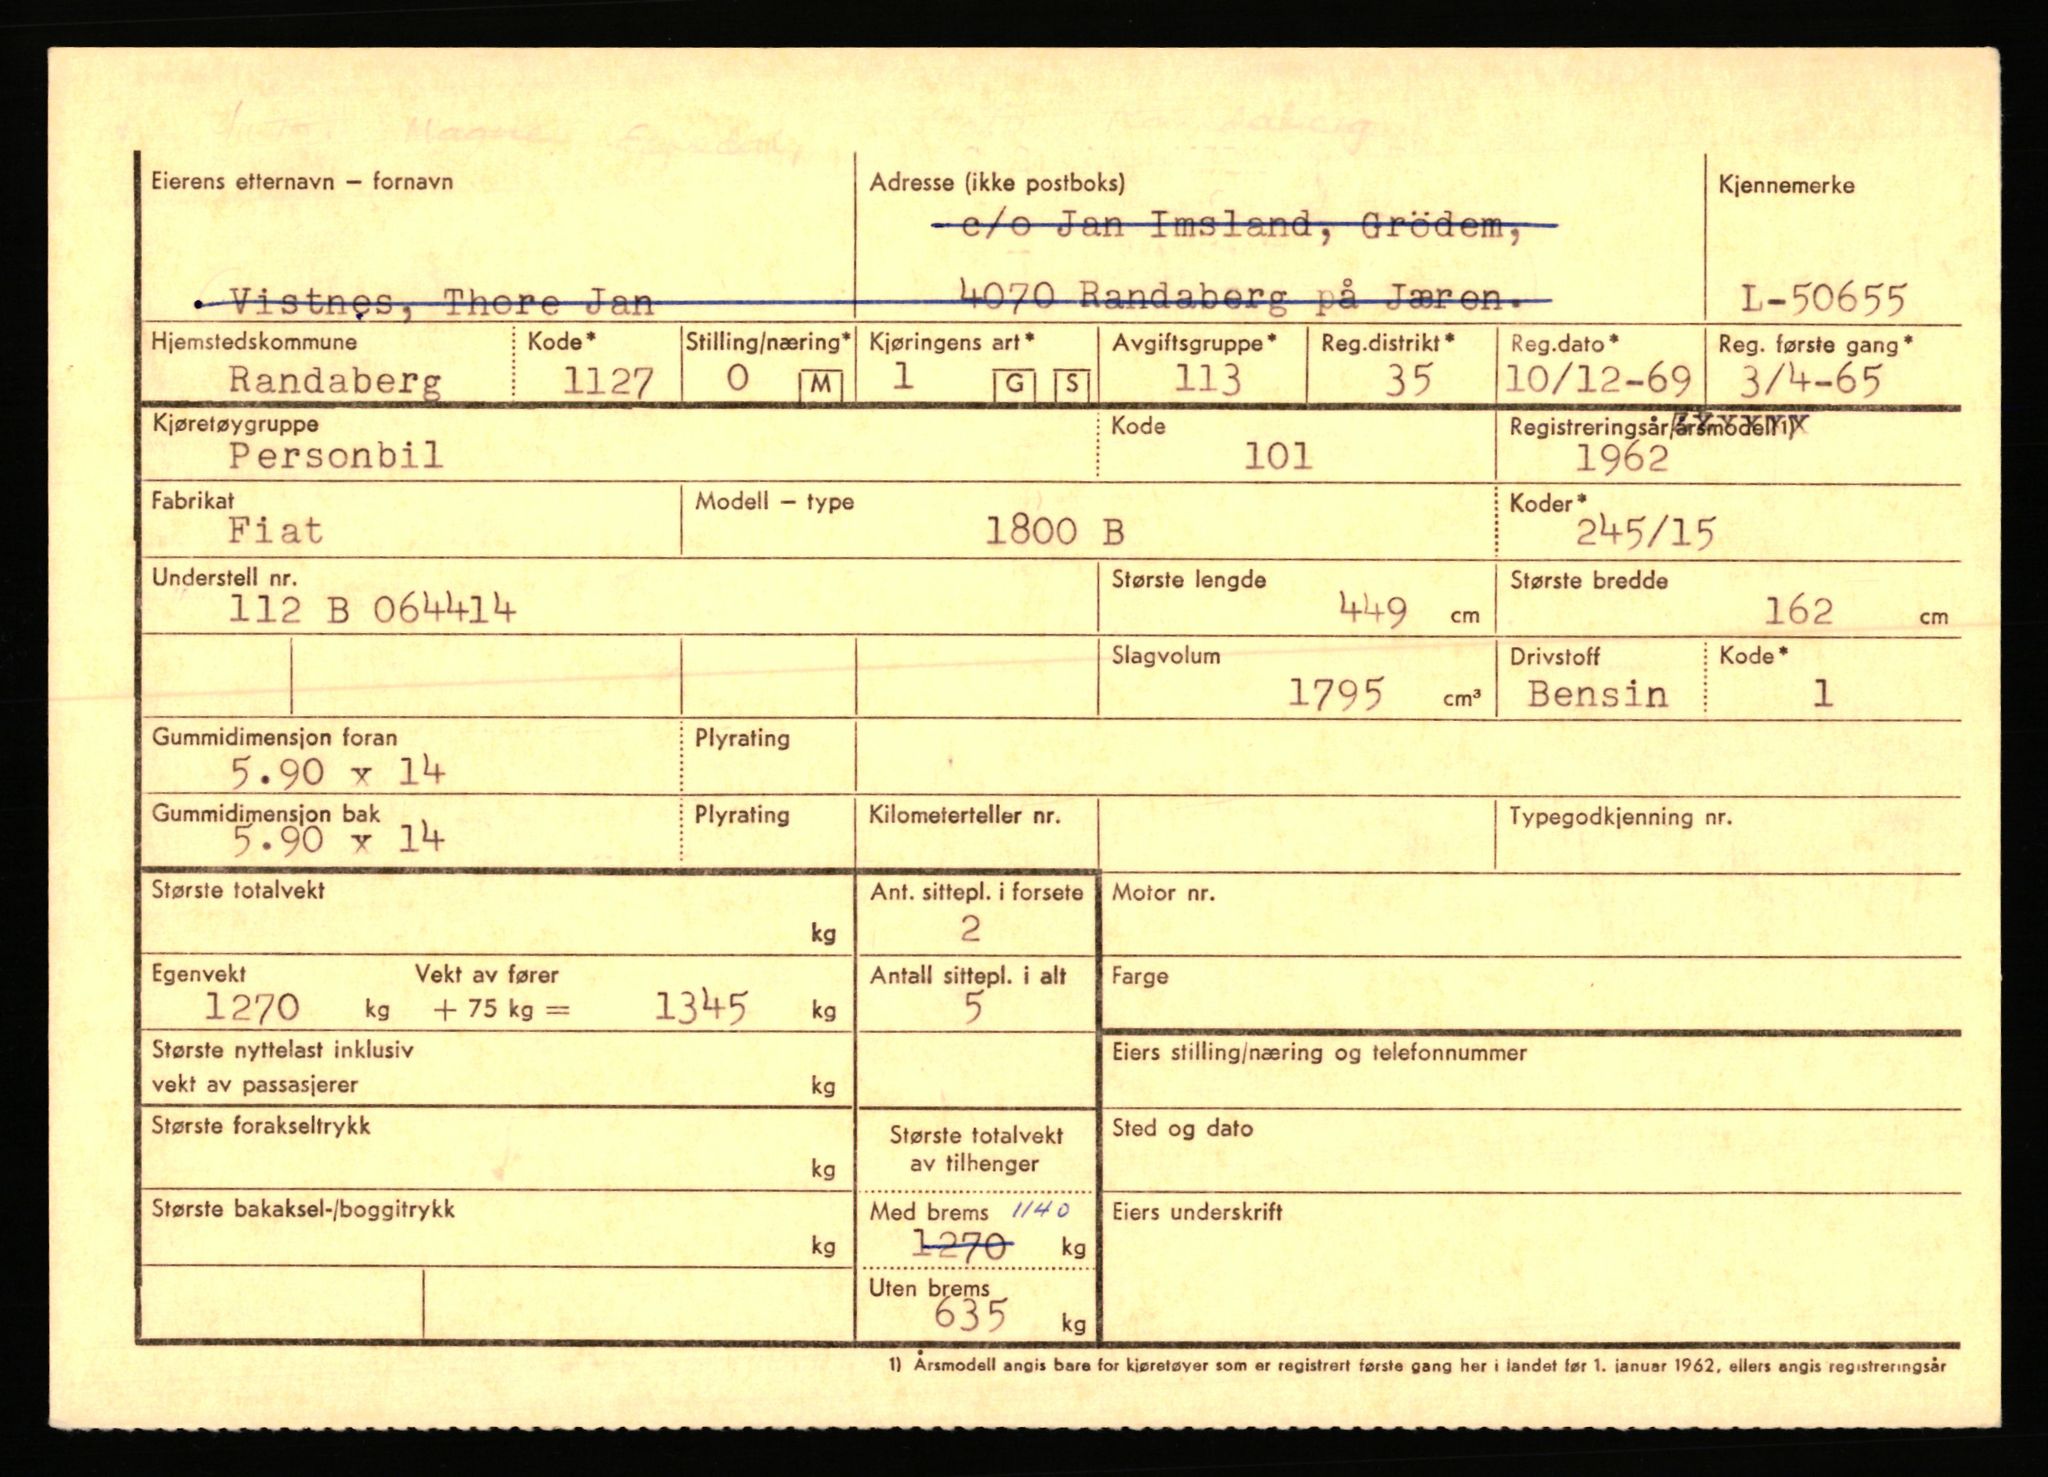 Magne
Eierens etternavn – fornavn
Adresse (ikke postboks)
Kjennemerke
c/o Jan Imsland, Grödem,
Vistnes, Thore Jan
4070 Randaberg på Jæren.
L-50655
Hjemstedskommune Kode* Stilling/næring* Kjøringens art* Avgiftsgruppe* Reg.distrikt* Reg.dato* Reg. første gang*
Randaberg 1127 0 M 1 G S 113 35 10/12-69 3/4-65
Kjøretøygruppe Kode Registreringsår/årsmodell 1)
Personbil 101 1962
Fabrikat Modell – type Koder*
Fiat 1800 B 245/15
Understell nr. Største lengde Største bredde
112 B 064414 449 cm 162 cm
Slagvolum Drivstoff Kode*
1795 cm³ Bensin 1
Gummidimensjon foran Plyrating
5.90 x 14
Gummidimensjon bak Plyrating Kilometerteller nr. Typegodkjenning nr.
5.90 x 14
Største totalvekt Ant. sittepl. i forsete Motor nr.
kg 2
Egenvekt Vekt av fører Antall sittepl. i alt Farge
1270 kg + 75 kg = 1345 kg 5
Største nyttelast inklusiv Eiers stilling/næring og telefonnummer
vekt av passasjerer kg
Største forakseltrykk Største totalvekt Sted og dato
kg av tilhenger
Største bakaksel-/boggitrykk Med brems 1140 Eiers underskrift
kg 1270 kg
Uten brems
635 kg
1) Årsmodell angis bare for kjøretøyer som er registrert første gang her i landet før 1. januar 1962, ellers angis registreringsår